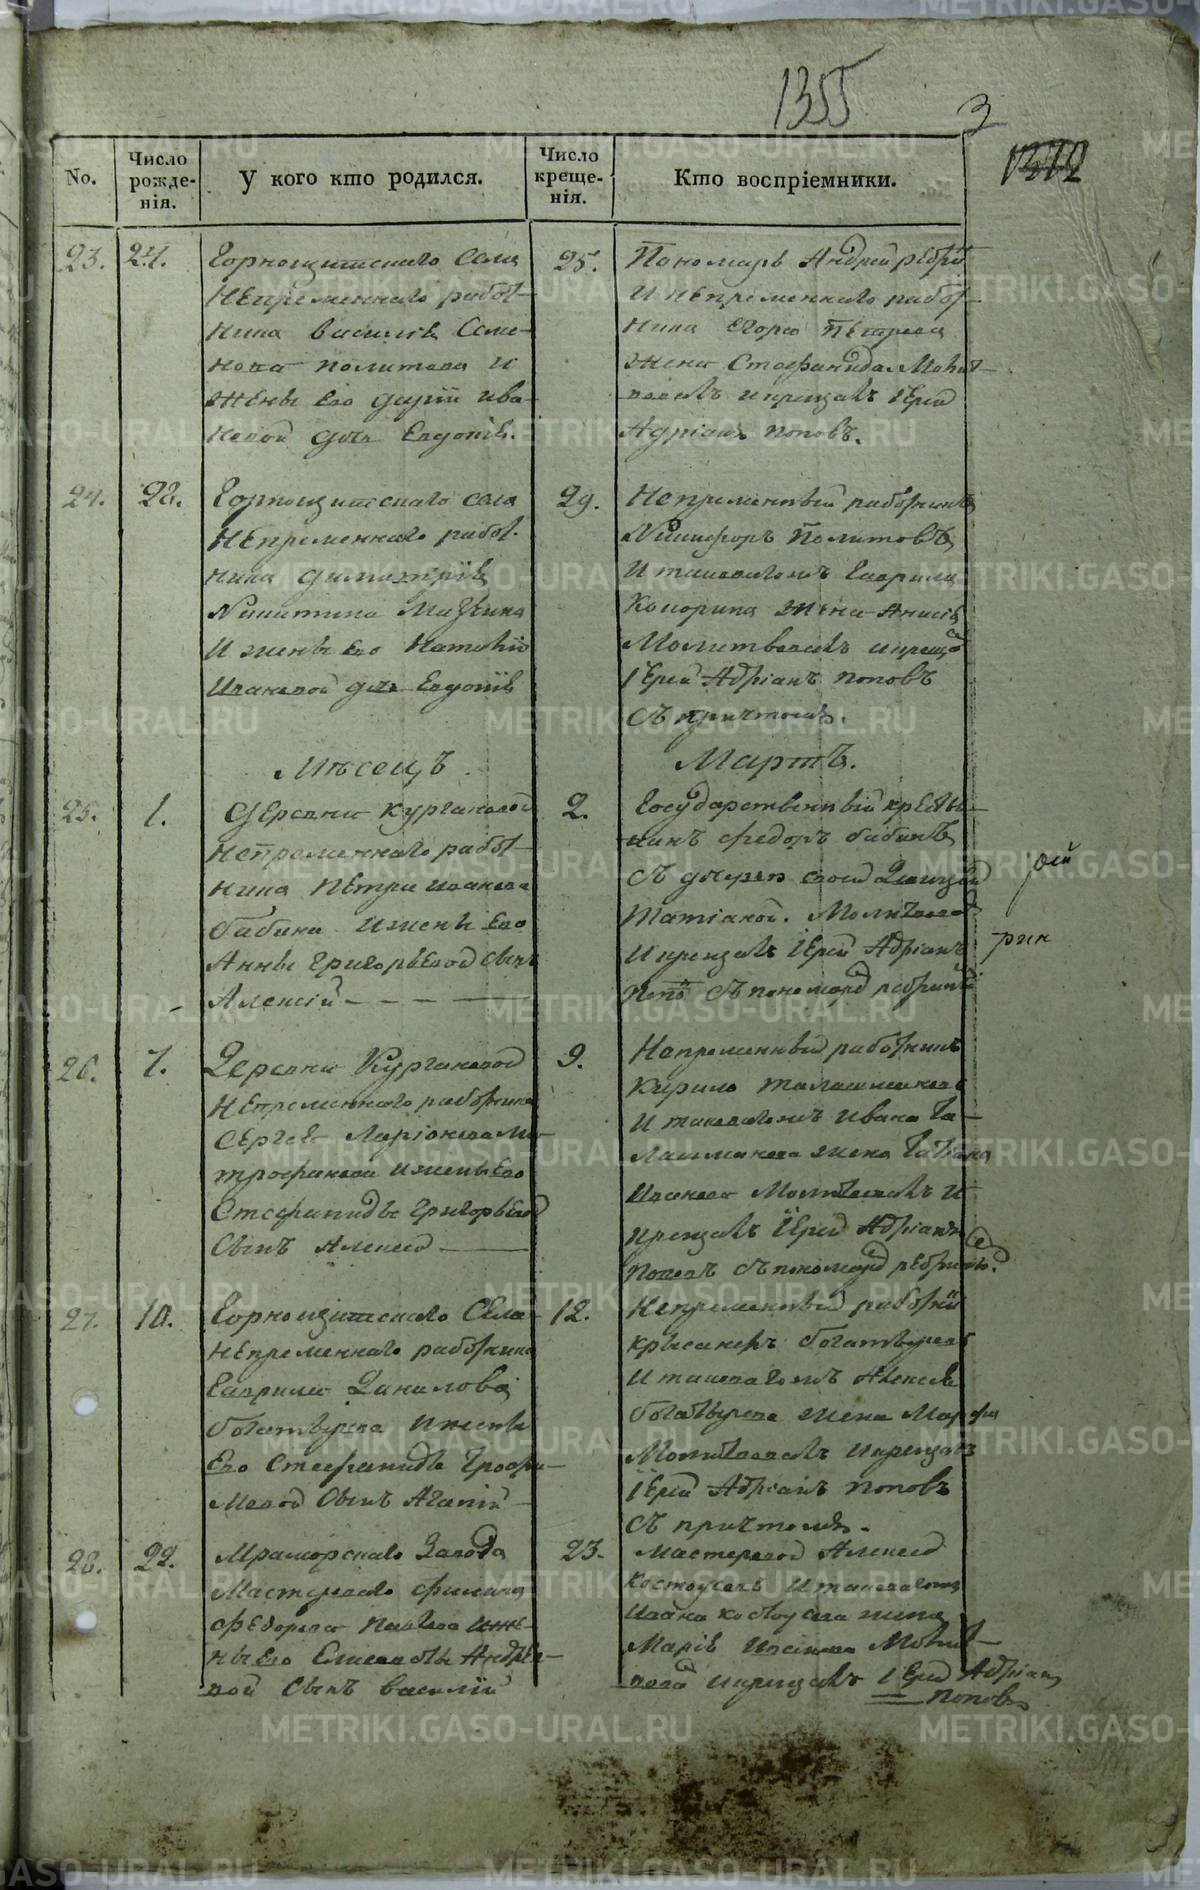 1355
3
1372
No.
Число рожде-нія.
У кого кто родился.
Число креще-нія.
Кто воспріемники.
23. 24.
Горнощитскаго села
Непременнаго работ-
ника Василія Семе-
нова Политова и
жены его Даріи Ива-
новой дочь Евдокія.
25.
Пономарь Андрей
и непременнаго работ-
ника Егора Петрова
жена Стефанида Молит-
вовалъ и крещалъ Іерей
Адріанъ Поповъ.
24. 28.
Горнощитскаго села
Непременнаго работ-
ника Димитрія
Никитина Мазухина
и жены его Наталіи
Ивановой дочь Евдокія
29.
Непременный работникъ
Никифоръ Политовъ
и таковагожъ Гаврила
жена Анисія
Молитвовалъ и крещ
Іерей Адріанъ Поповъ
съ причтомъ.
Мѣсецъ
Мартъ.
25. 1.
Деревни Кургановой
Непременнаго работ-
ника Петра Иванова
Бабина и жены его
Анны Григорьевой сынъ
Алексій
2.
Государственный кресть-
янинъ Федоръ Бабинъ
съ дочерью своей девицей
Татіаной. Молитвовал
и крещалъ Іерей Адріанъ
съ пономар
26. 7.
Деревни Кургановой
Непременнаго работника
Сергея Ларіонова Ми-
трофанова и жены его
Стефаниды Григорьевой
сынъ Алексей
9.
Непременный работникъ
Кирило Талашмановъ
и таковагожъ Ивана Та-
лашманова жена Татіана
Иванова Молитвовалъ и
крещалъ Іерей Адріанъ
Поповъ съ пономар
27. 10.
Горнощитскаго села
Непременнаго работника
Гаврила Данилова
Богатырева и жены
его Стефаниды Трофи-
мовой сынъ Агапій
12.
Непременный работни
Богатыревъ
и таковагожъ Алексея
Богатырева жена Марфа
Молитвовалъ и крещалъ
Іерей Адріанъ Поповъ
съ причтомъ.
28. 22.
Мраморскаго завода
Мастероваго Филипа
Федорова и же-
ны его Елисаветы Андрее-
вой сынъ Василій
23.
Мастеровой Алексей
Костоусовъ и таковагожъ
Ивана Костоусова жена
Марія Молит-
вовалъ и крещалъ Іерей Адріан
Поповъ
METRIKI.GASO-URAL.RU